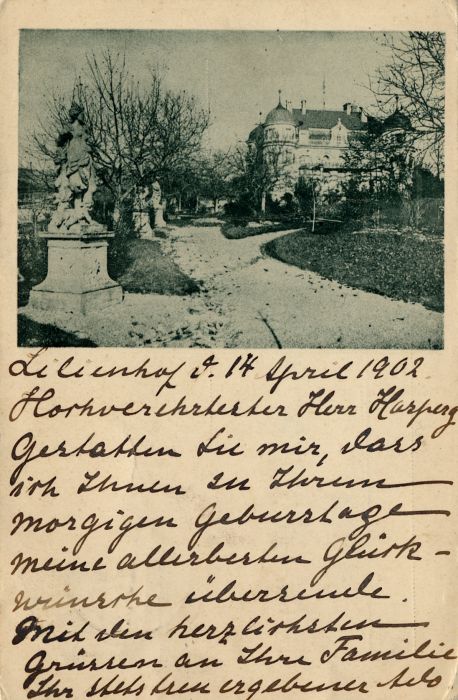 Lilienhof d. 14 April 1902.
Hochverehrtester Herr Harperg
Gestatten Sie mir, dass
ich Ihnen zu Ihrem
morgigen Geburtstage
meine allerbesten Glück-
wünsche übersende.
Mit den herzlichsten
Grüssen an Ihre Familie
Ihr stets treu ergebener